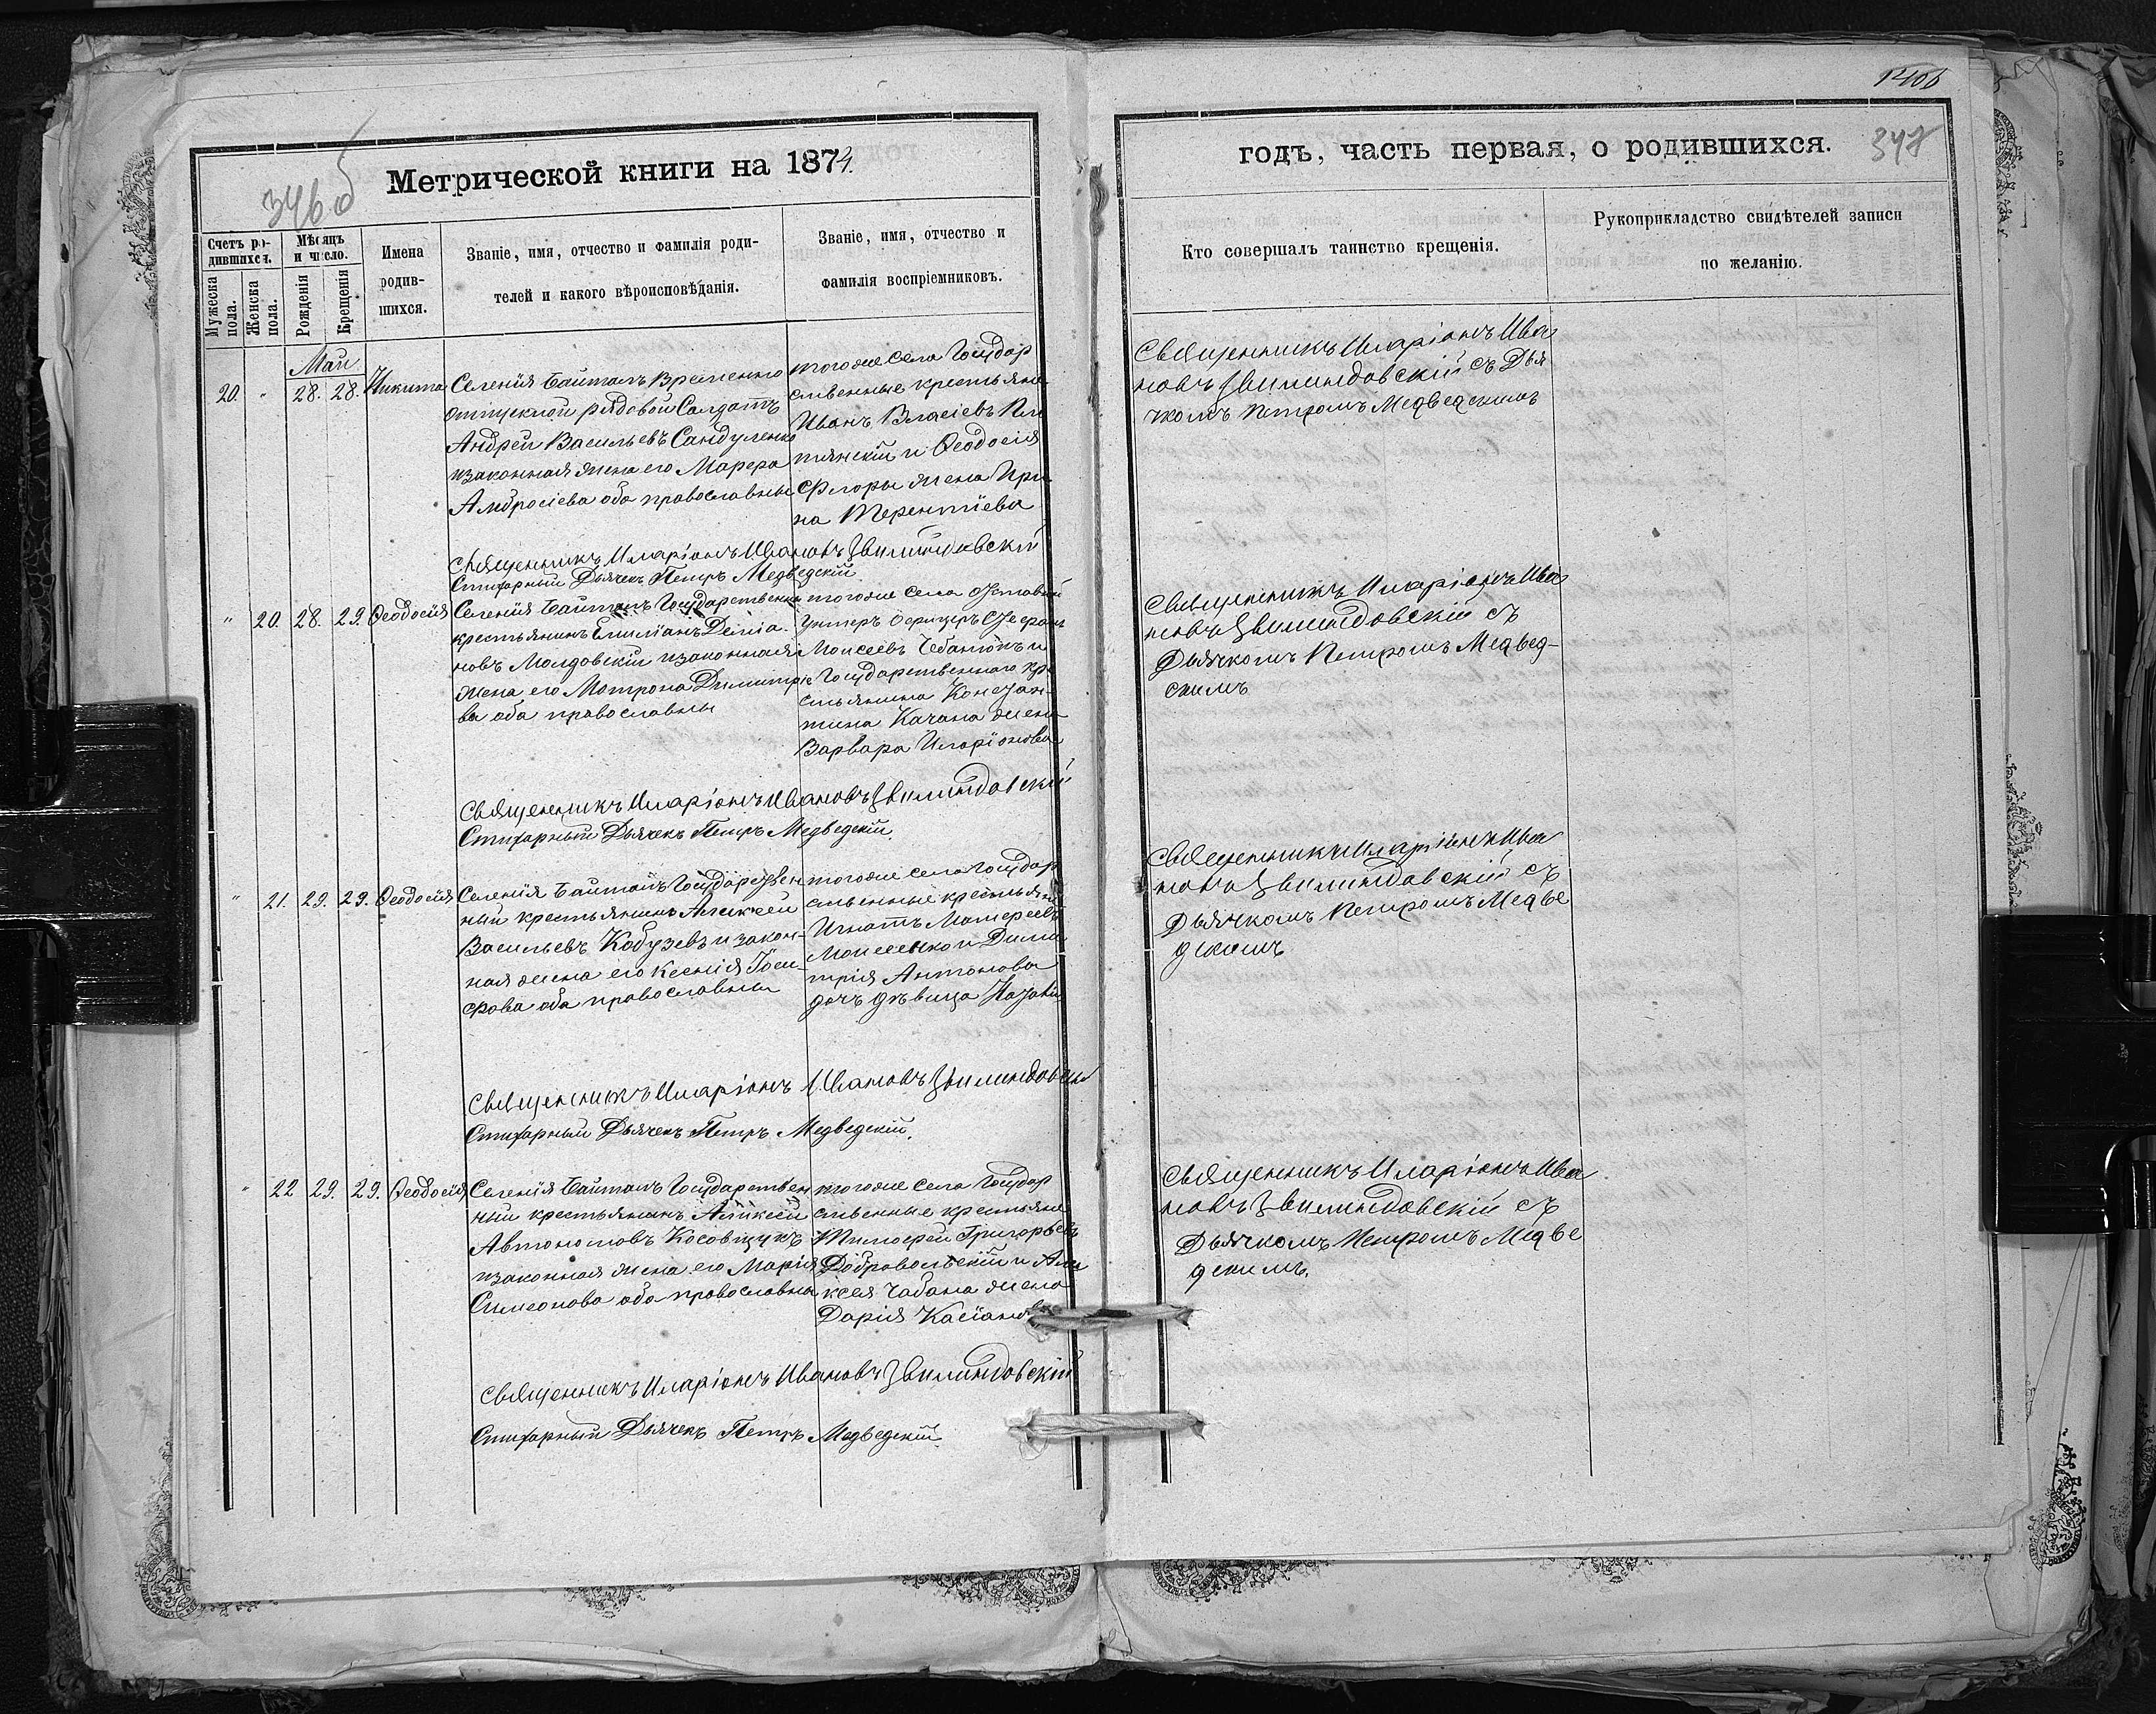 346 об
Метрической книги на 1874.
Счетъ ро-
дившихся.
Мужеска пола.
Женска пола.
Мѣсяцъ
и число.
Рожденія
Крещенія
Имена
родив-
шихся.
Званіе, имя, отчество и фамилія роди-
телей и какого вѣроисповѣданія.
Званіе, имя, отчество и
фамилія воспріемниковъ.
Май
20. " 28. 28. Никита
Селенія Байталъ Временно
отпускной рядовой Солдатъ
Андрей Васильевъ Сандуленко
и законная жена его Марфа
Амвросіева оба православны
тогоже села Государ
ственные крестьяне
Иванъ Власіевъ
и Ѳеодосія
Флоры жена Ири
на Терентіева
Священникъ Иларіонъ Ивановъ
Стихарный Дьячекъ Петръ Медведскій
" 20. 28. 29. Ѳеодосія
Селенія Байталъ Государственный
крестьянинъ Емиліанъ
новъ Молдовскій и законная
жена его Мотрона Димитріе
ва оба православны
тогоже села
Унтеръ Офицеръ
Моисеевъ и
Государственнаго кре
стьянина Констан-
тина Качана жена
Варвара Иларіонова
Священникъ Иларіонъ Ивановъ
Стихарный Дьячекъ Петръ Медведскій.
" 21. 29. 29. Ѳеодосія
Селенія Байталъ Государствен
ный крестьянинъ Алексей
Васильевъ Кобузевъ и закон-
ная жена его Ксенія Іоси-
фова оба православны
тогоже села Государ
ственные крестьяне
Игнатъ Матфеевъ
Моисеенко и Дими
трія Антонова
дочь дѣвица
Священникъ Иларіонъ Ивановъ
Стихарный Дьячекъ Петръ Медведскій.
" 22 29. 29. Ѳеодосія
Селенія Байталъ Государствен
ный крестьянинъ Алексей
Автономовъ Косовщукъ
и законная жена его Марія
Симеонова оба православны
тогоже села Государ
ственные крестьяне
Тимофей Григорьевъ
Добровольскій и Але
ксея Чабана жена
Дарія Касіанова
Священникъ Иларіонъ Ивановъ
Стихарный Дьячекъ Петръ Медведскій.
347
годъ, часть первая, о родившихся.
Кто совершалъ таинство крещенія.
Рукоприкладство свидѣтелей записи
по желанію.
Священникъ Иларіонъ Ива
новъ съ Дья
чкомъ Петромъ Медведскимъ
Священникъ Иларіонъ Ива
новъ съ
Дьячкомъ Петромъ Медвед-
скимъ
Священникъ Иларіонъ Ива
новъ съ
Дьячкомъ Петромъ Медве
дскимъ
Священникъ Иларіонъ Ива
новъ съ
Дьячкомъ Петромъ Медве
дскимъ.